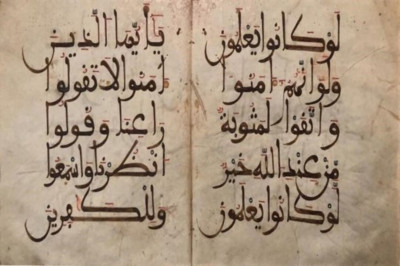 لو كانوا يعلمون
ولو انهم امنوا
واتقوا لمثوبة
من عند الله خير
لو كانوا يعلمون
يأيها الذين
امنوا لا تقولوا
راعنا وقولوا
انظرنا واسمعوا
وللكفرين